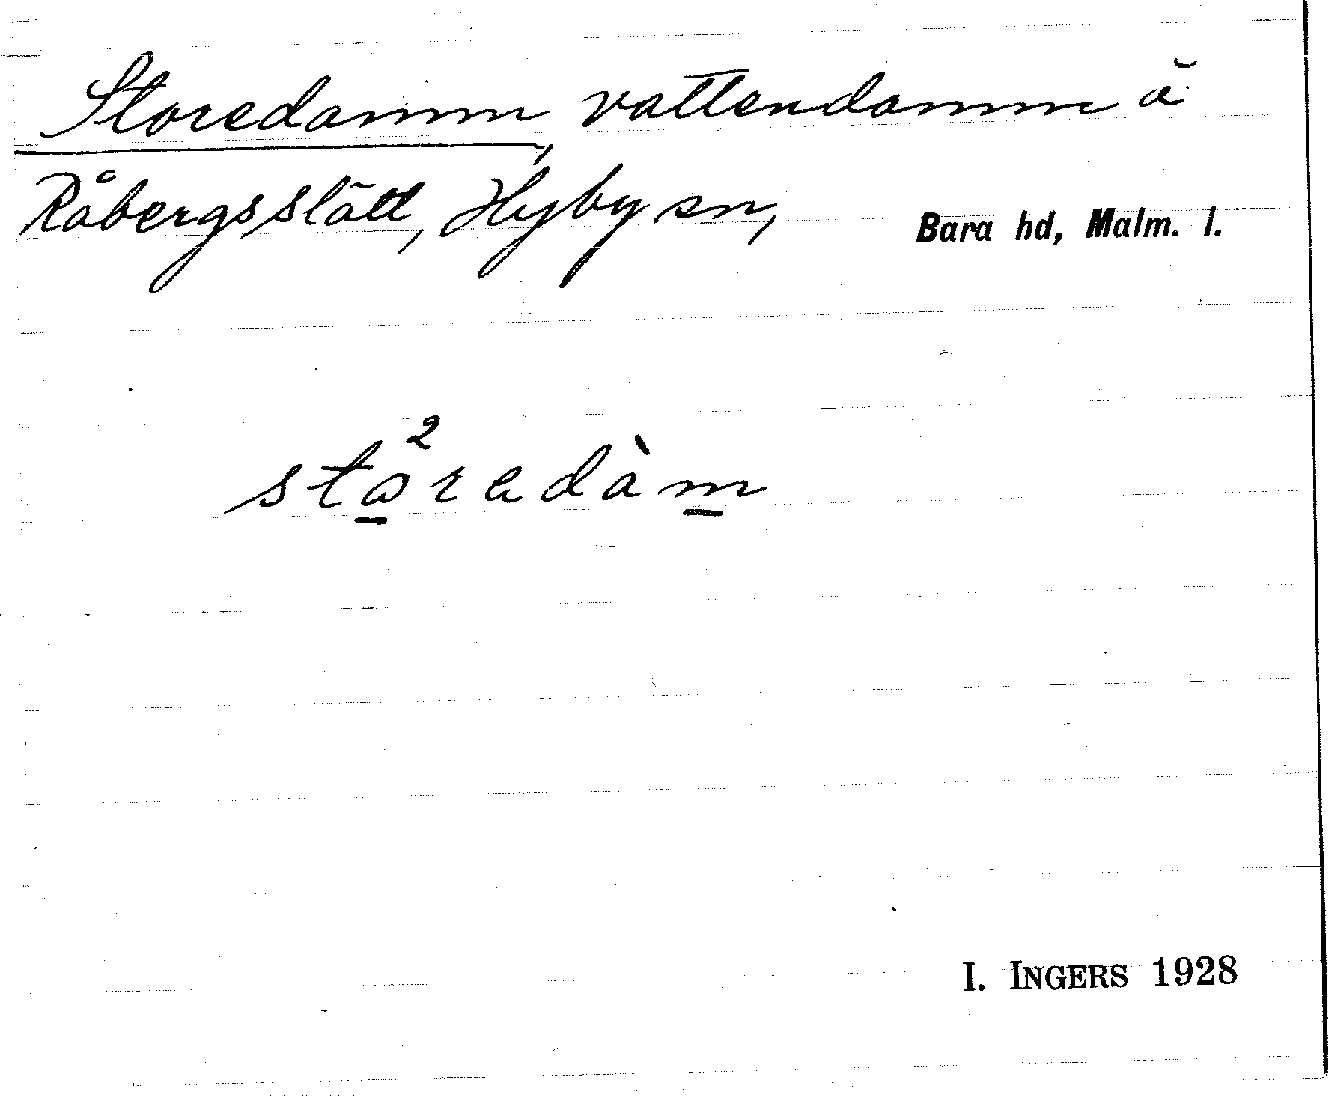 Storedamm, vattendamm å
Råbergsslätt, Hyby sn, Bara hd, Malm. l.
stå²redàm
I. INGERS 1928